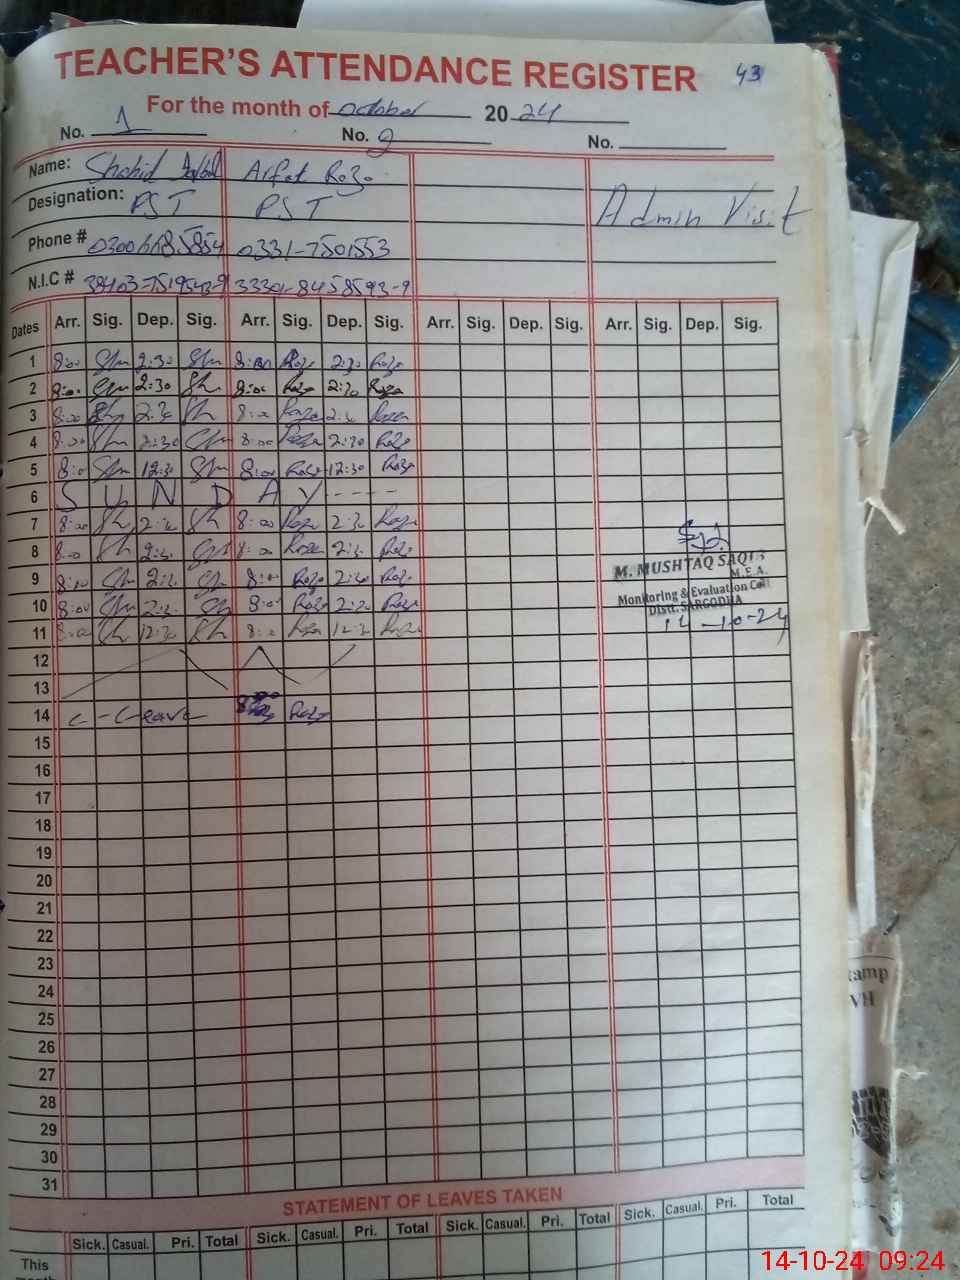 TEACHER'S ATTENDANCE REGISTER 43
For the month of October 2024
No. 1 No. 2 No.
Name: Shahid Arfat Raza
Designation: PST PST Admin Visit
Phone # 03006685854 0331-7501553
N.I.C # 38403-7519543-9 33301-8458593-9
Dates Arr. Sig. Dep. Sig. Arr. Sig. Dep. Sig. Arr. Sig. Dep. Sig. Arr. Sig. Dep. Sig.
1 8:00 2:30 8:00 Raza 2:30 Raza
2 8:00 2:30 8:00 Raza 2:30 Raza
3 8:00 2:30 8:00 Raza 2:30 Raza
4 8:00 2:30 8:00 Raza 2:30 Raza
5 8:00 12:30 8:00 Raza 12:30 Raza
6 S U N D A Y - - - - -
7 8:00 2:30 8:00 Raza 2:30 Raza
8 8:00 2:30 8:00 Raza 2:30 Raza
9 8:00 2:30 8:00 Raza 2:30 Raza
10 8:00 2:30 8:00 Raza 2:30 Raza
11 8:00 12:30 8:00 Raza 12:30 Raza
M. MUSHTAQ SAQIB
M.E.A.
Monitoring & Evaluation Cell
Distt. SARGODHA
14-10-24
12
13
14 C-Leave Raza
15
16
17
18
19
20
21
22
23
24
25
26
27
28
29
30
31
STATEMENT OF LEAVES TAKEN
Sick. Casual. Pri. Total Sick. Casual. Pri. Total Sick. Casual. Pri. Total Sick. Casual. Pri. Total
This
month
tamp
VH
14-10-24 09:24